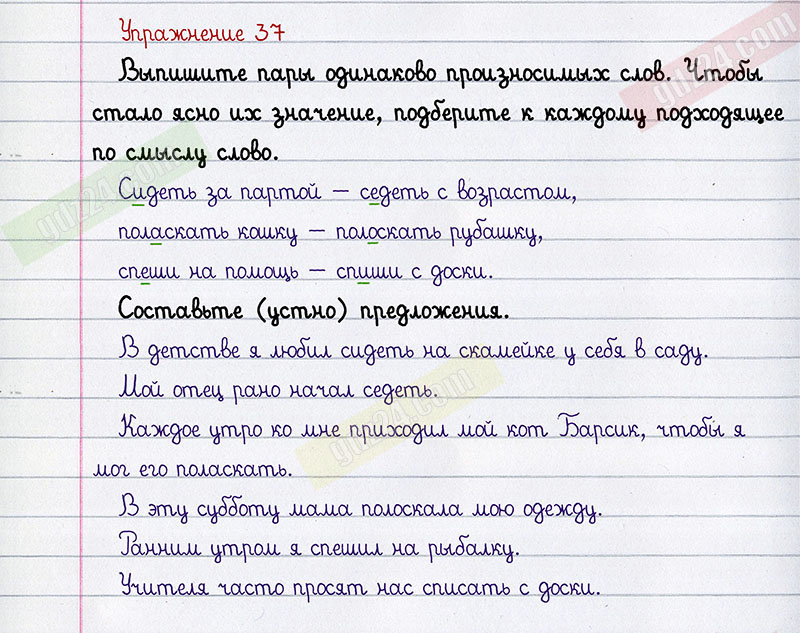 Упражнение 37
Выпишите пары одинаково произносимых слов. Чтобы
стало ясно их значение, подберите к каждому подходящее
по смыслу слово.
Сидеть за партой – седеть с возрастом,
поласкать кошку – полоскать рубашку,
спеши на помощь – спиши с доски.
Составьте (устно) предложения.
В детстве я любил сидеть на скамейке у себя в саду.
Мой отец рано начал седеть.
Каждое утро ко мне приходил мой кот Барсик, чтобы я
мог его поласкать.
В эту субботу мама полоскала мою одежду.
Ранним утром я спешил на рыбалку.
Учителя часто просят нас списать с доски.
gdz24.com
gdz24.com
gdz24.com